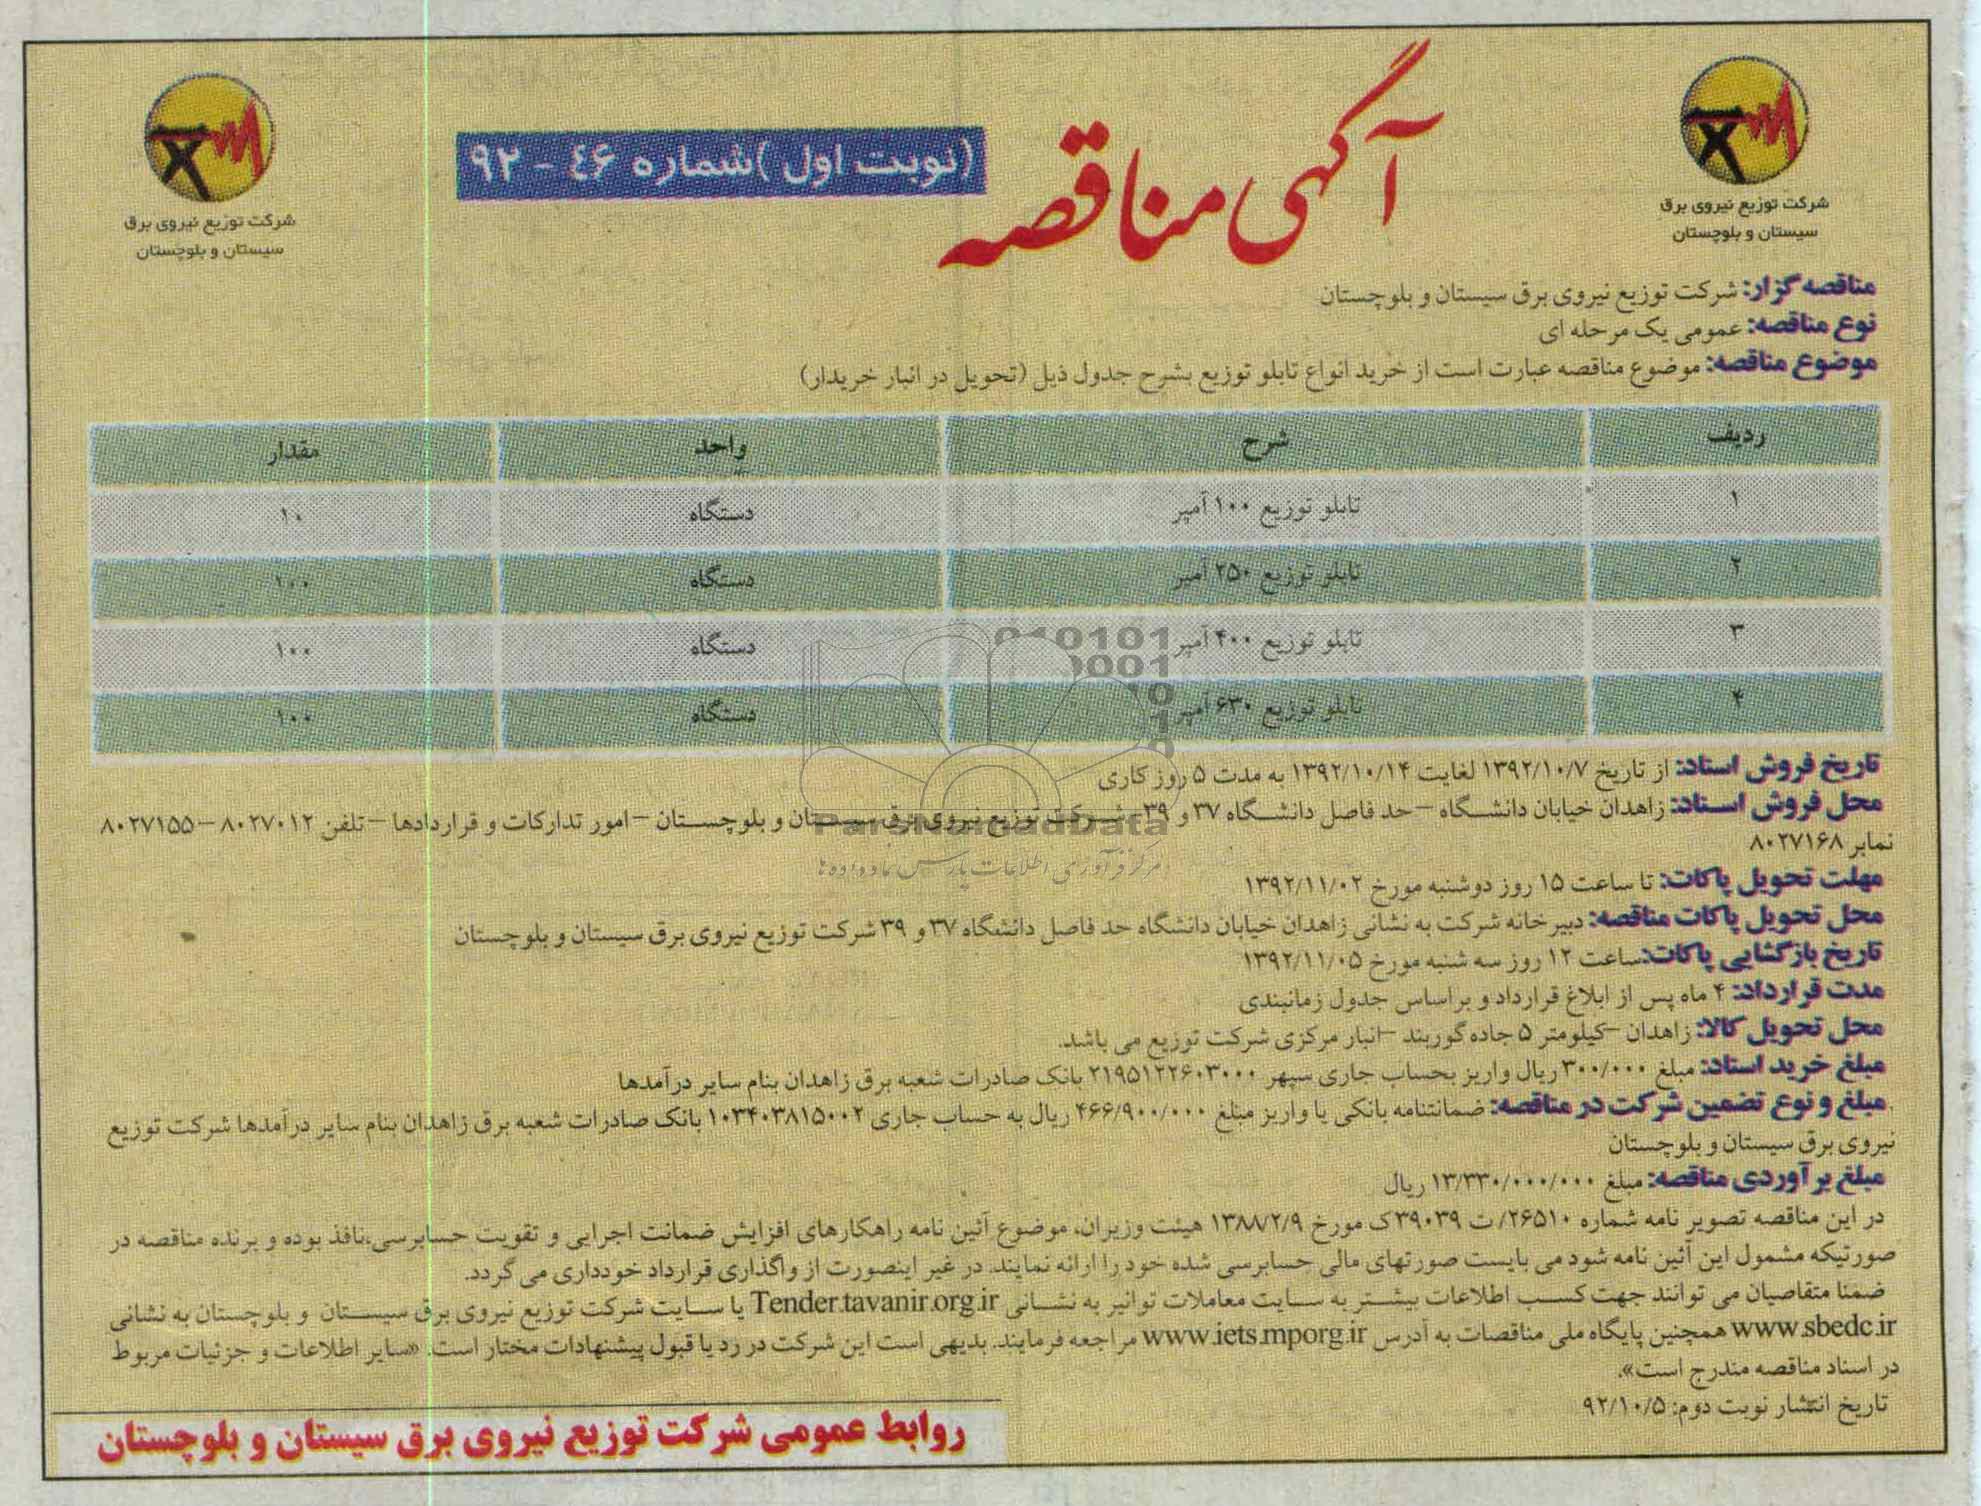 آگهی مناقصه
(نوبت اول) شماره ٤۶ - ۹۲
شرکت توزیع نیروی برق
سیستان و بلوچستان
شرکت توزیع نیروی برق
سیستان و بلوچستان
مناقصه گزار: شرکت توزیع نیروی برق سیستان و بلوچستان
نوع مناقصه: عمومی یک مرحله ای
موضوع مناقصه: موضوع مناقصه عبارت است از خرید انواع تابلو توزیع بشرح جدول ذیل (تحویل در انبار خریدار)
ردیف شرح واحد مقدار
۱ تابلو توزیع ۱۰۰ آمپر دستگاه ۱۰
۲ تابلو توزیع ۲۵۰ آمپر دستگاه ۱۰۰
۳ تابلو توزیع ۴۰۰ آمپر دستگاه ۱۰۰
۴ تابلو توزیع ۶۳۰ آمپر دستگاه ۱۰۰
تاریخ فروش اسناد: از تاریخ ۱۳۹۲/۱۰/۷ لغایت ۱۳۹۲/۱۰/۱۴ به مدت ۵ روز کاری
محل فروش اسناد: زاهدان خیابان دانشگاه – حد فاصل دانشگاه ۳۷ و ۳۹ – شرکت توزیع نیروی برق سیستان و بلوچستان – امور تدارکات و قراردادها – تلفن ۸۰۲۷۰۱۲ – ۸۰۲۷۱۵۵
نمابر ۸۰۲۷۱۶۸
مهلت تحویل پاکات: تا ساعت ۱۵ روز دوشنبه مورخ ۱۳۹۲/۱۱/۰۲
محل تحویل پاکات مناقصه: دبیرخانه شرکت به نشانی زاهدان خیابان دانشگاه حد فاصل دانشگاه ۳۷ و ۳۹ شرکت توزیع نیروی برق سیستان و بلوچستان
تاریخ بازگشایی پاکات: ساعت ۱۲ روز سه شنبه مورخ ۱۳۹۲/۱۱/۰۵
مدت قرارداد: ۴ ماه پس از ابلاغ قرارداد و براساس جدول زمانبندی
محل تحویل کالا: زاهدان – کیلومتر ۵ جاده گوربند – انبار مرکزی شرکت توزیع می باشد.
مبلغ خرید اسناد: مبلغ ۳۰۰/۰۰۰ ریال واریز بحساب جاری سپهر ۲۱۹۵۱۲۲۶۰۳۰۰۰ بانک صادرات شعبه برق زاهدان بنام سایر درآمدها
مبلغ و نوع تضمین شرکت در مناقصه: ضمانتنامه بانکی یا واریز مبلغ ۴۶۶/۹۰۰/۰۰۰ ریال به حساب جاری ۱۰۳۴۰۳۸۱۵۰۰۲ بانک صادرات شعبه برق زاهدان بنام سایر درآمدها شرکت توزیع
نیروی برق سیستان و بلوچستان
مبلغ برآوردی مناقصه: مبلغ ۱۳/۳۳۰/۰۰۰/۰۰۰ ریال
در این مناقصه تصویر نامه شماره ۲۶۵۱۰/ ت ۳۹۰۳۹ ک مورخ ۱۳۸۸/۲/۹ هیئت وزیران، موضوع آئین نامه راهکارهای افزایش ضمانت اجرایی و تقویت حسابرسی،نافذ بوده و برنده مناقصه در
صورتیکه مشمول این آئین نامه شود می بایست صورتهای مالی حسابرسی شده خود را ارائه نمایند. در غیر اینصورت از واگذاری قرارداد خودداری می گردد.
ضمنا متقاضیان می توانند جهت کسب اطلاعات بیشتر به سایت معاملات توانیر به نشانی Tender.tavanir.org.ir یا سایت شرکت توزیع نیروی برق سیستان و بلوچستان به نشانی
www.sbedc.ir همچنین پایگاه ملی مناقصات به آدرس www.iets.mporg.ir مراجعه فرمایند. بدیهی است این شرکت در رد یا قبول پیشنهادات مختار است. «سایر اطلاعات و جزئیات مربوط
در اسناد مناقصه مندرج است».
تاریخ انتشار نوبت دوم: ۹۲/۱۰/۵
روابط عمومی شرکت توزیع نیروی برق سیستان و بلوچستان
ParsNamadData
مرکز فرآوری اطلاعات پارس نماد داده ها